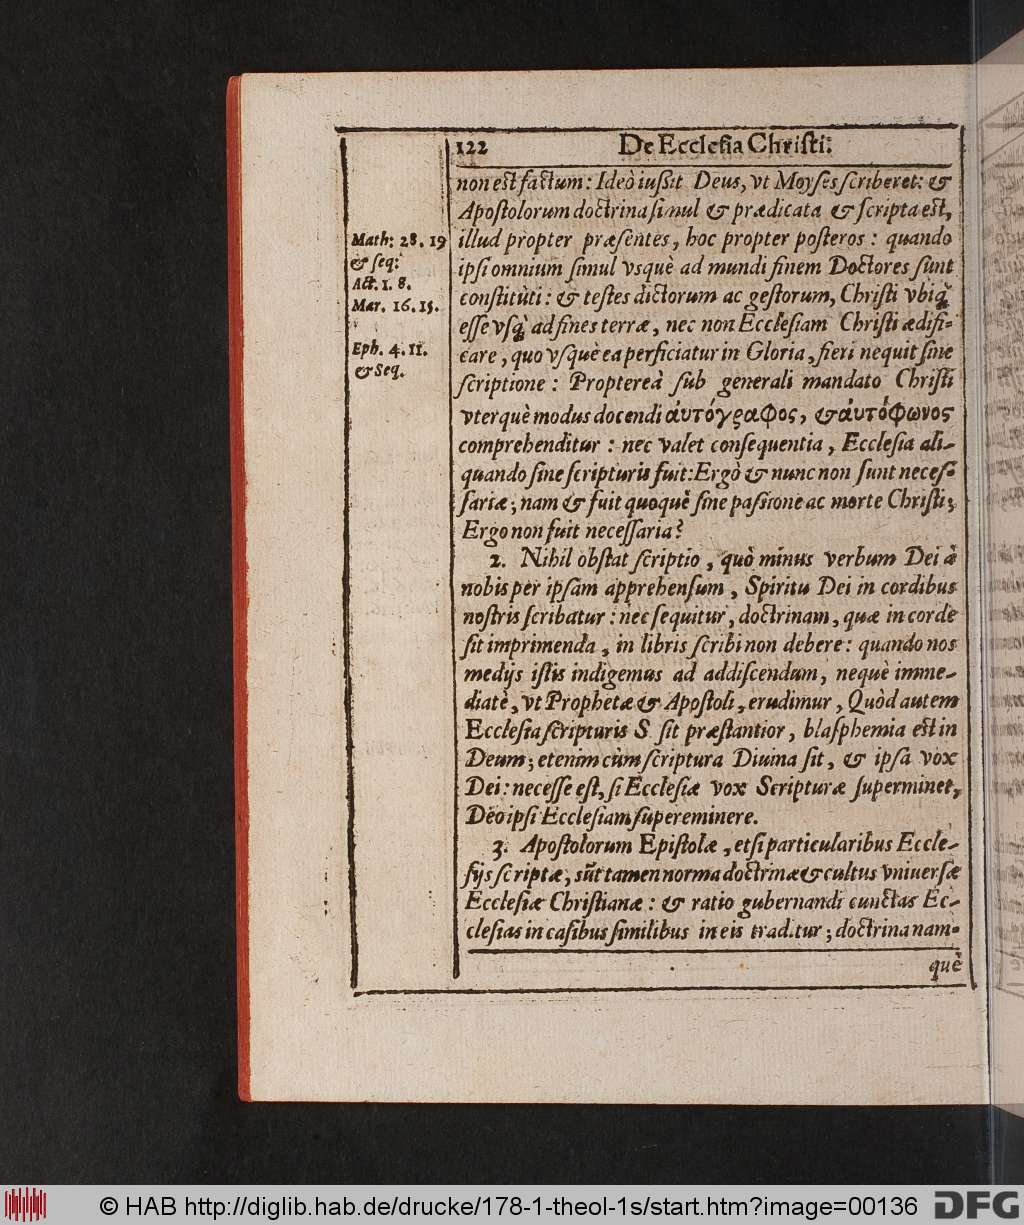 122 De Ecclesia Christi:
non est factum: Ideò iußit Deus, vt Moyses scriberet: &
Apostolorum doctrina simul & prædicata & scripta est,
Math: 28. 19
& seq:
Act. 1. 8.
Mar. 16. 15.
Eph. 4. 11.
& Seq.
illud propter præsentes, hoc propter posteros: quando
ipsi omnium simul vsquè ad mundi finem Doctores sunt
constitùti: & testes dictorum ac gestorum, Christi vbiq̀;
esse vsq̀; ad fines terræ, nec non Ecclesiam Christi ædifi-
care, quo vsquè ea perficiatur in Gloria, fieri nequit sine
scriptione: Proptereà sub generali mandato Christi
vterquè modus docendi ἀυτόγραφος, & ἀυτόφωνος
comprehenditur: nec valet consequentia, Ecclesia ali-
quando sine scripturis fuit: Ergò & nunc non sunt neces-
sariæ; nam & fuit quoquè sine paßione ac morte Christi;
Ergo non fuit necessaria?
2. Nihil obstat scriptio, quò minus verbum Dei â
nobis per ipsam apprehensum, Spiritu Dei in cordibus
nostris scribatur: nec sequitur, doctrinam, quæ in corde
sit imprimenda, in libris scribi non debere: quando nos
medijs istis indigemus ad addiscendum, nequè imme-
diatè, vt Prophetæ & Apostoli, erudimur, Quòd autem
Ecclesia scripturis S. sit præstantior, blasphemia est in
Deum; etenim cùm scriptura Diuina sit, & ipsa vox
Dei: necesse est, si Ecclesiæ vox Scripturæ superminet,
Deo ipsi Ecclesiam supereminere.
3. Apostolorum Epistolæ, etsi particularibus Eccle-
sijs scriptæ, sũt tamen norma doctrinæ & cultus vniuersæ
Ecclesiæ Christianæ: & ratio gubernandi cunctas Ec-
clesias in casibus similibus in eis traditur; doctrina nam-
què
© HAB http://diglib.hab.de/drucke/178-1-theol-1s/start.htm?image=00136 DFG